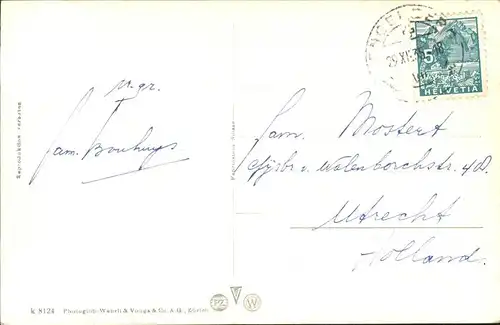 m. gr.
fam. Bouhuys
Fam. Mostert
Gijsbr. v. Walenborchstr. 40
Utrecht
Holland.
5
HELVETIA
29.XII.
Reproduktion verboten
K 8124 Photoglob-Wehrli & Vouga & Co. A.G., Zürich
PZ
W